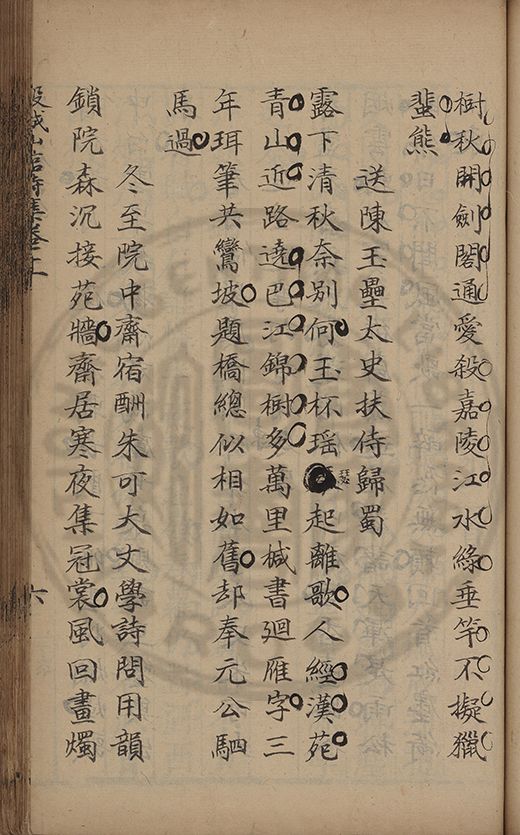 樹秋開劍閣通愛殺嘉陵江水綠垂竿不擬獵
蜚熊
送陳玉壘太史扶侍歸蜀
露下清秋奈別何玉杯瑶瑟起離歌人經漢苑
青山近路遶巴江錦樹多萬里椷書廻雁字三
年珥筆共鸞坡題橋總似相如舊却奉元公駟
馬過
冬至院中齋宿酬朱可大文學詩問用韻
鎖院森沉接苑牆齋居寒夜集冠裳風回畫燭
六